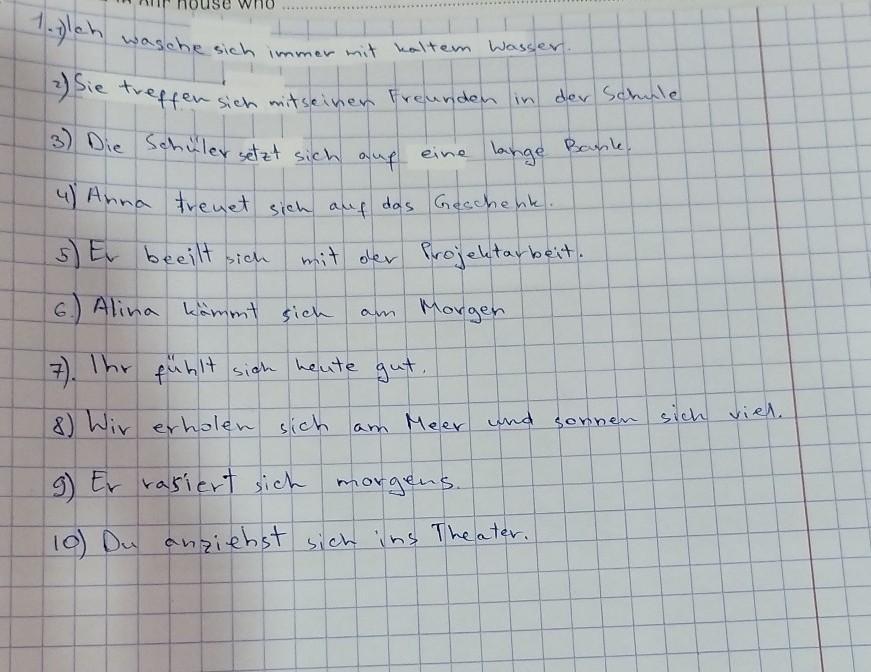 house who
1. 1) Ich wasche sich immer mit kaltem Wasser.
2) Sie treffen sich mitseinen Freunden in der Schule
3) Die Schüler setzt sich auf eine lange Bank.
4) Anna freuet sich auf das Geschenk.
5) Er beeilt sich mit der Projektarbeit.
6.) Alina kämmt sich am Morgen
7). Ihr fühlt sich heute gut.
8) Wir erholen sich am Meer und sonnen sich viel.
9) Er rasiert sich morgens.
10) Du anziehst sich ins Theater.